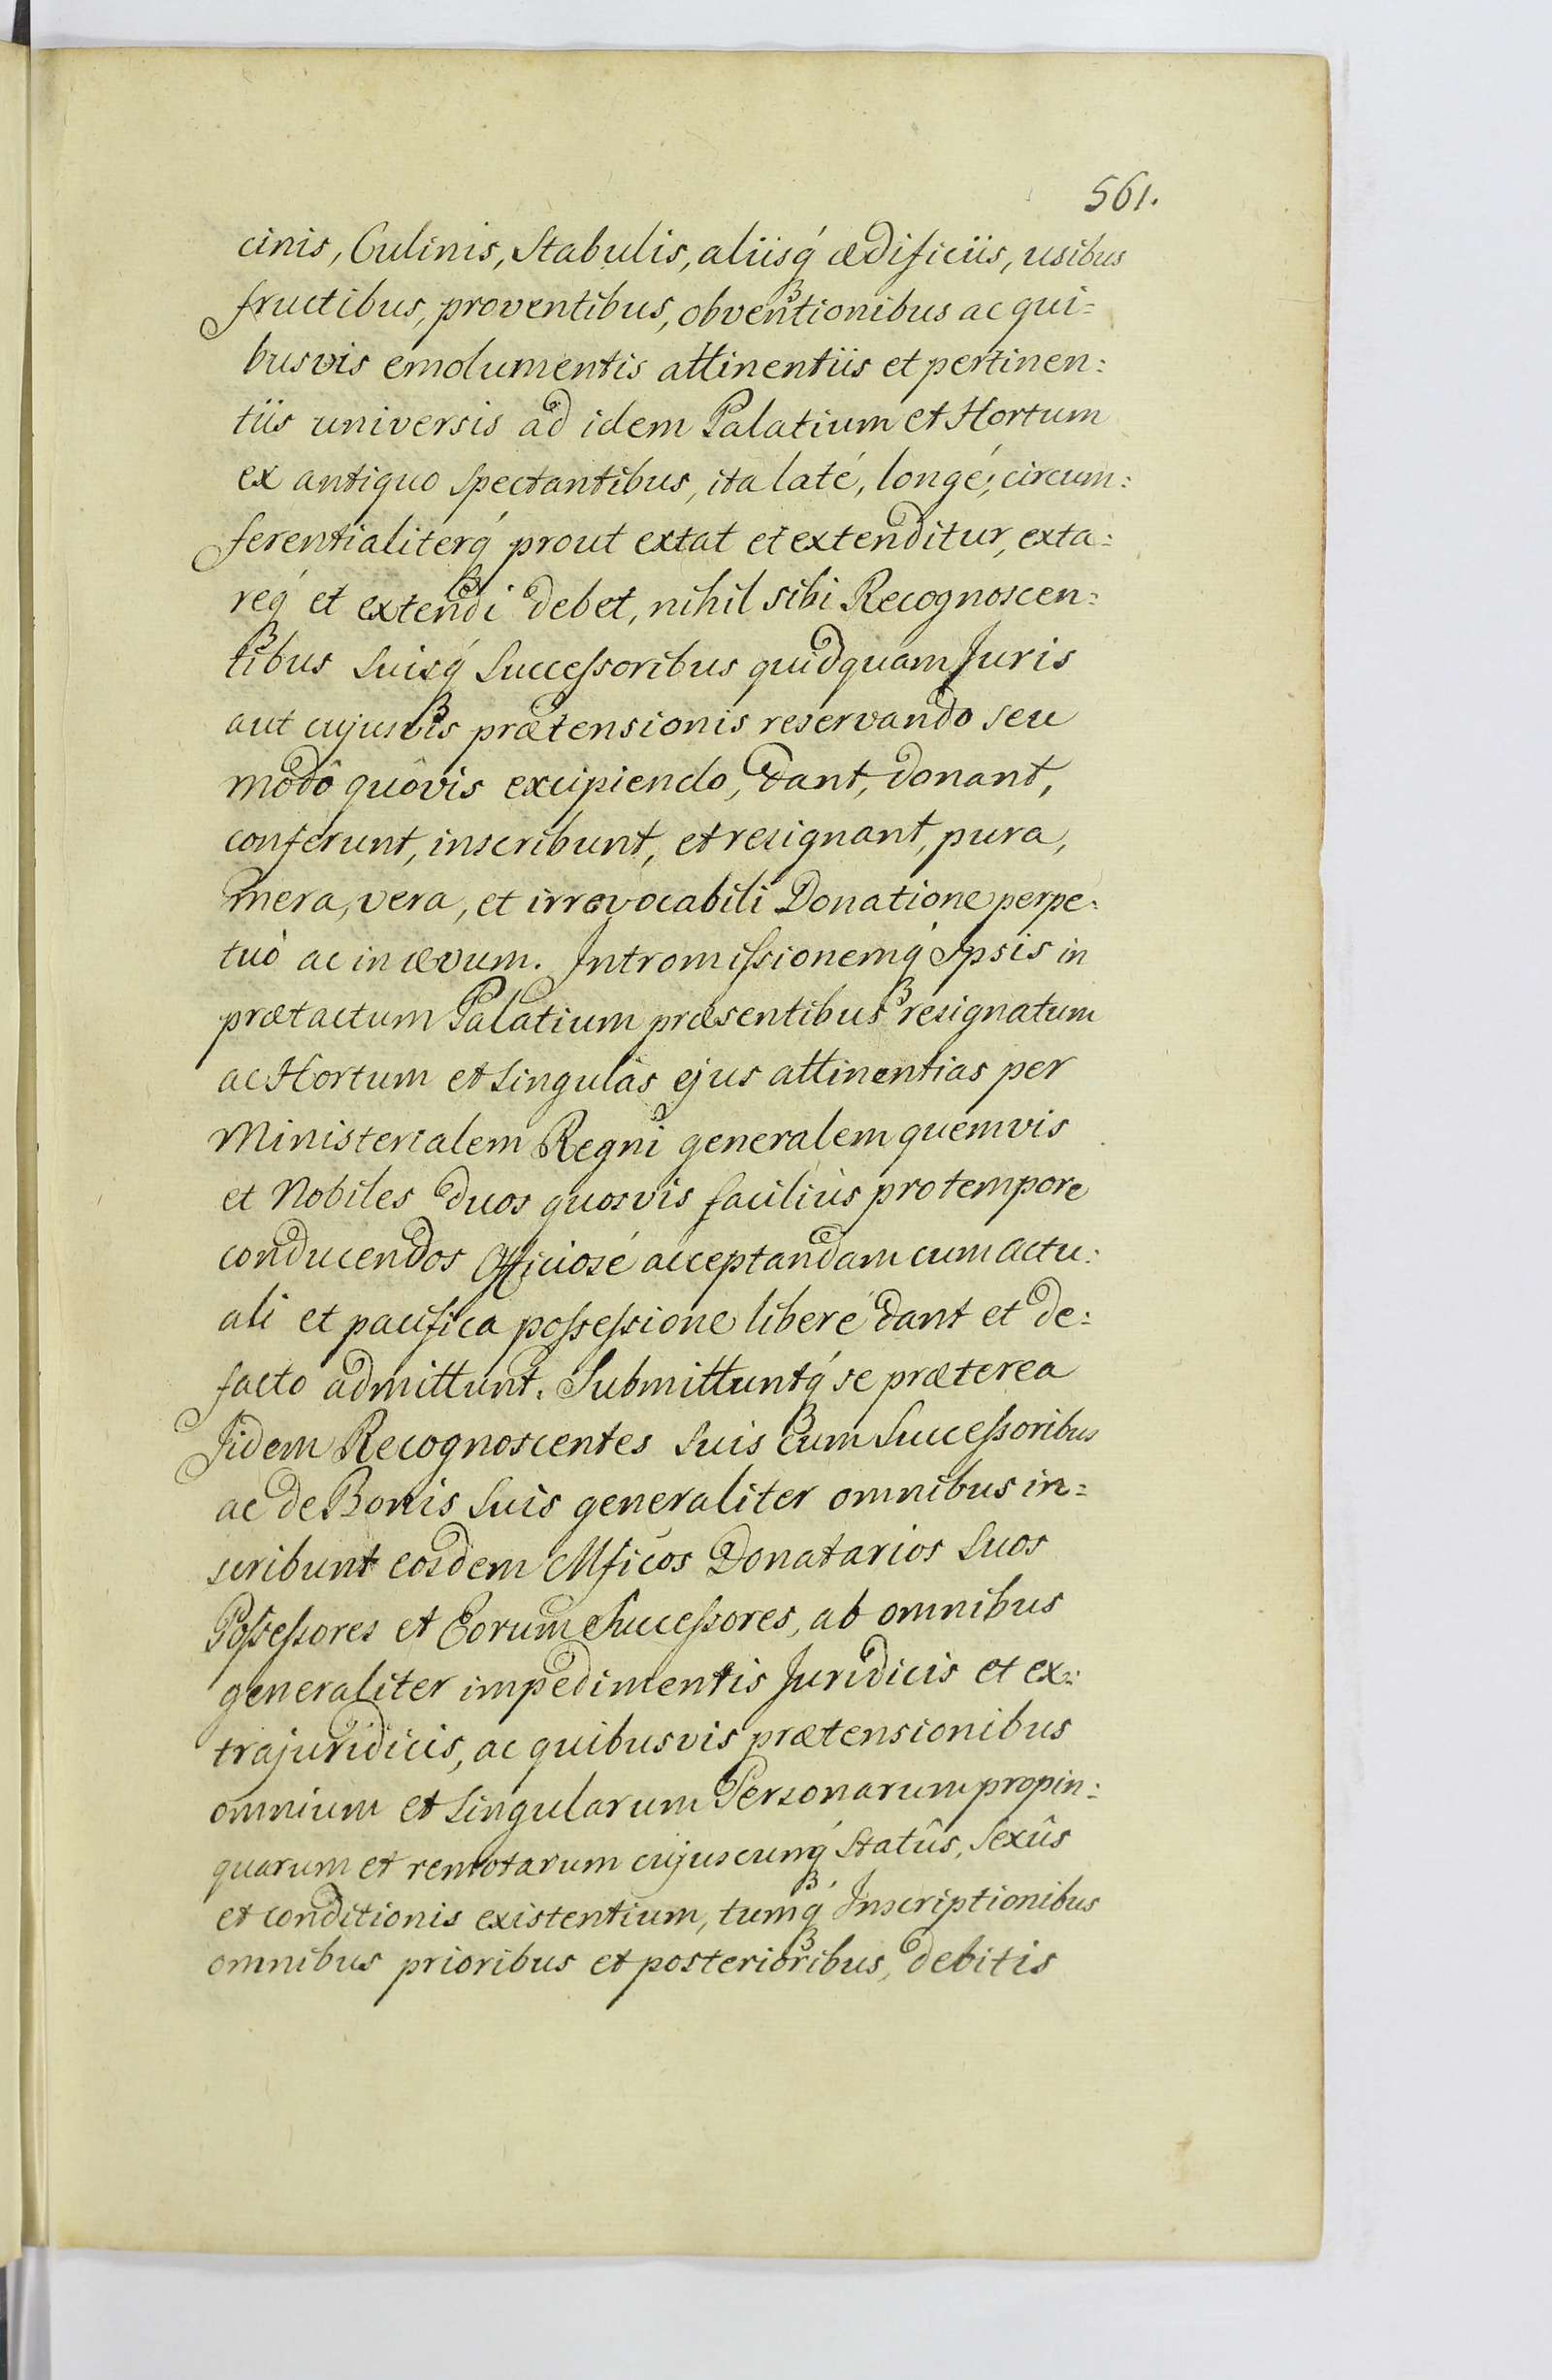 561.
cinis, Culinis, Stabulis, aliisq́ ædificiis, usibus
fructibus, proventibus, obventionibus ac qui=
busvis emolumentis attinentiis et pertinen:
tiis universis ad idem Palatium et Hortum
ex antiquo spectantibus, ita laté, longé, circum:
ferentialiterq́ prout extat et extenditur, exta:
req́ et extendi debet, nihil sibi Recognoscen:
tibus suisq́ Successoribus quidquam Juris
aut cujusvis prætensionis reservando seu
modô quôvis excipiendo, dant, donant,
conferunt, inscribunt, et resignant, pura,
mera, vera, et irrevocabili Donatione perpe:
tuò ac in ævum. Intromissionemq́ Ipsis in
prætactum Palatium præsentibus resignatum
ac Hortum et singulas ejus attinentias per
Ministerialem Regni generalem quemvis
et Nobiles duos quosvis facilius pro tempore
conducendos Officiosé acceptandam cum actu:
ali et pacifica possessione liberé dant et de:
facto admittunt. Submittuntq́ se præterea
Jidem Recognoscentes suis cum Successoribus
ac de Bonis suis generaliter omnibus in=
scribunt eosdem Mficos Donatarios suos
Possessores et Eorum Successores, ab omnibus
generaliter impedimentis Juridicis et ex:
trajuridicis, ac quibusvis prætensionibus
omnium et singularum Personarum propin:
quarum et remotarum cujuscunq́ Statûs, Sexûs
et conditionis existentium, tumq́ Inscriptionibus
omnibus prioribus et posterioribus, debitis